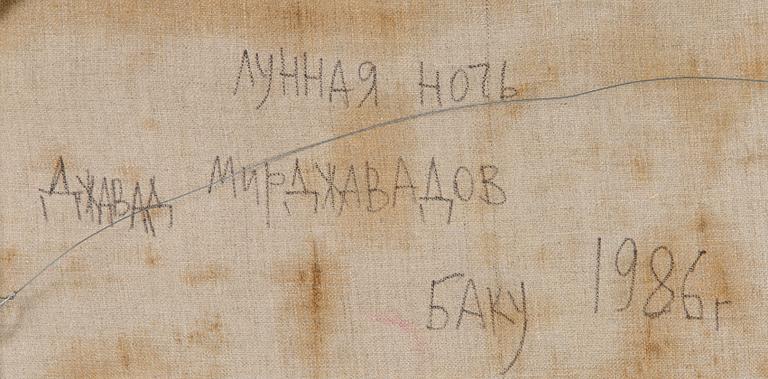 Лунная ночь
Джавад Мирджавадов
Баку 1986г